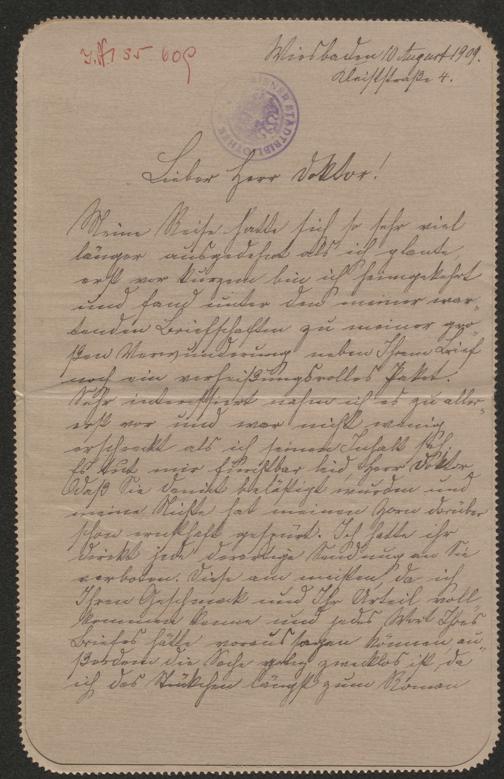 I.N. 135 609
Wiesbaden 10 August 1909.
Kleiststraße 4.
WIENER STADTBIBLIOTHEK
Lieber Herr Doktor!
Meine Reise hatte sich so sehr viel
länger ausgedehnt als ich plante,
erst vor kurzem bin ich heimgekehrt
und fand unter den meiner war-
tenden Briefschaften zu meiner gro-
ßen Verwunderung neben Ihrem Brief
noch ein verheißungsvolles Paket.
Sehr interessiert nahm ich es zu aller-
erst vor und war nicht wenig
erschreckt als ich seinen Inhalt sah.
Es tut mir furchtbar leid, Herr Doktor
daß Sie damit belästigt wurden und
meine hat meinen Zorn darüber
schon ernsthaft gespürt. Ich hatte ihr
direkt jede derartige Sendung an Sie
verboten. Diese am meisten, da ich
Ihren Geschmack und Ihr Urteil voll-
kommen kenne und jedes Wort Ihres
Briefes hätte voraussagen können au-
ßerdem die Sache zwecklos ist, da
ich das Stückchen längst zum Roman